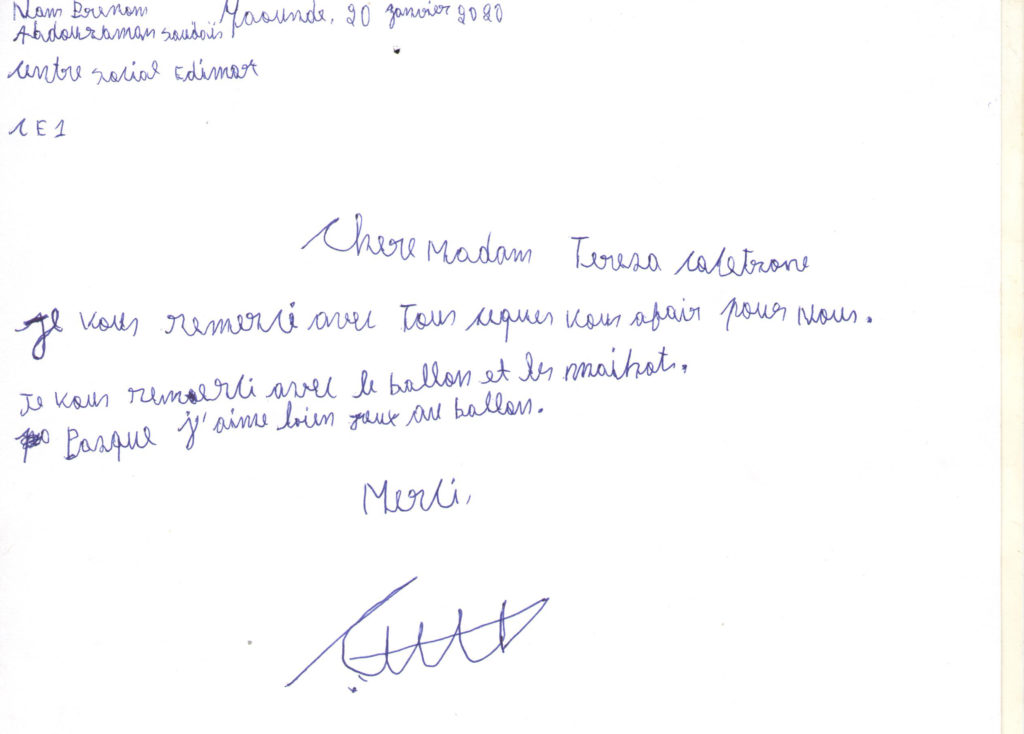 Nom Prenom Yaounde, 20 janvier 2020
Abdouraman Soudaïs
centre social Edimar
CE1
Chere Madam Tereza
Je vous remerci avec Tous ceques vous afair pour Nous.
Je vous remerci avec le ballon et les maikots.
Pasque j'aime bien jeux au ballon.
Merci,